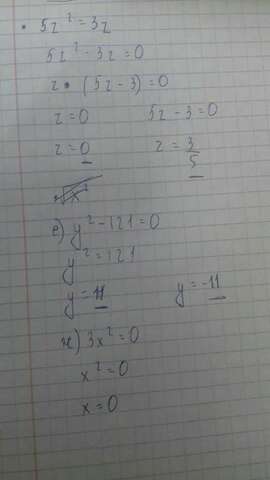 • 5z² = 3z
5z² - 3z = 0
z • (5z - 3) = 0
z = 0 5z - 3 = 0
z = 0 z = 3/5
е) y² - 121 = 0
y² = 121
y = 11 y = -11
ж) 3x² = 0
x² = 0
x = 0